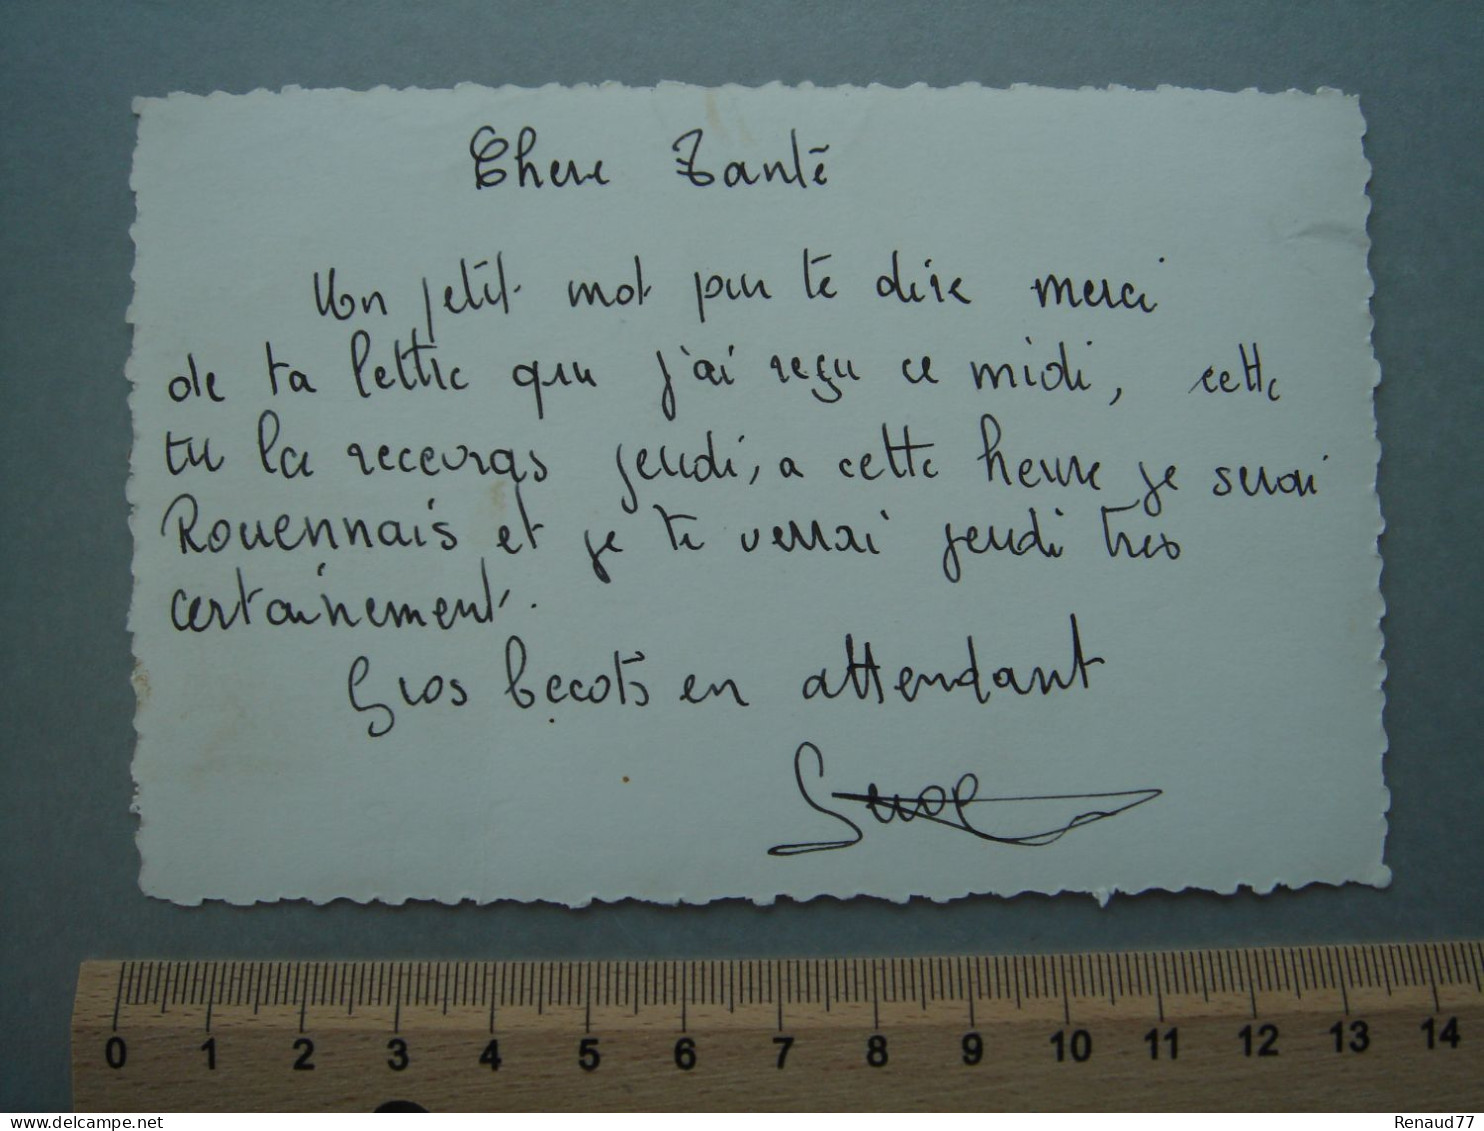 Chere Tante
Un petit mot pour te dire merci
de ta lettre que j'ai reçu ce midi, cette
tu la recevras jeudi, a cette heure je serai
Rouennais et je te verrai jeudi tres
certainement.
Gros becots en attendant
Serge
0 1 2 3 4 5 6 7 8 9 10 11 12 13 14
delcampe.net
Renaud77